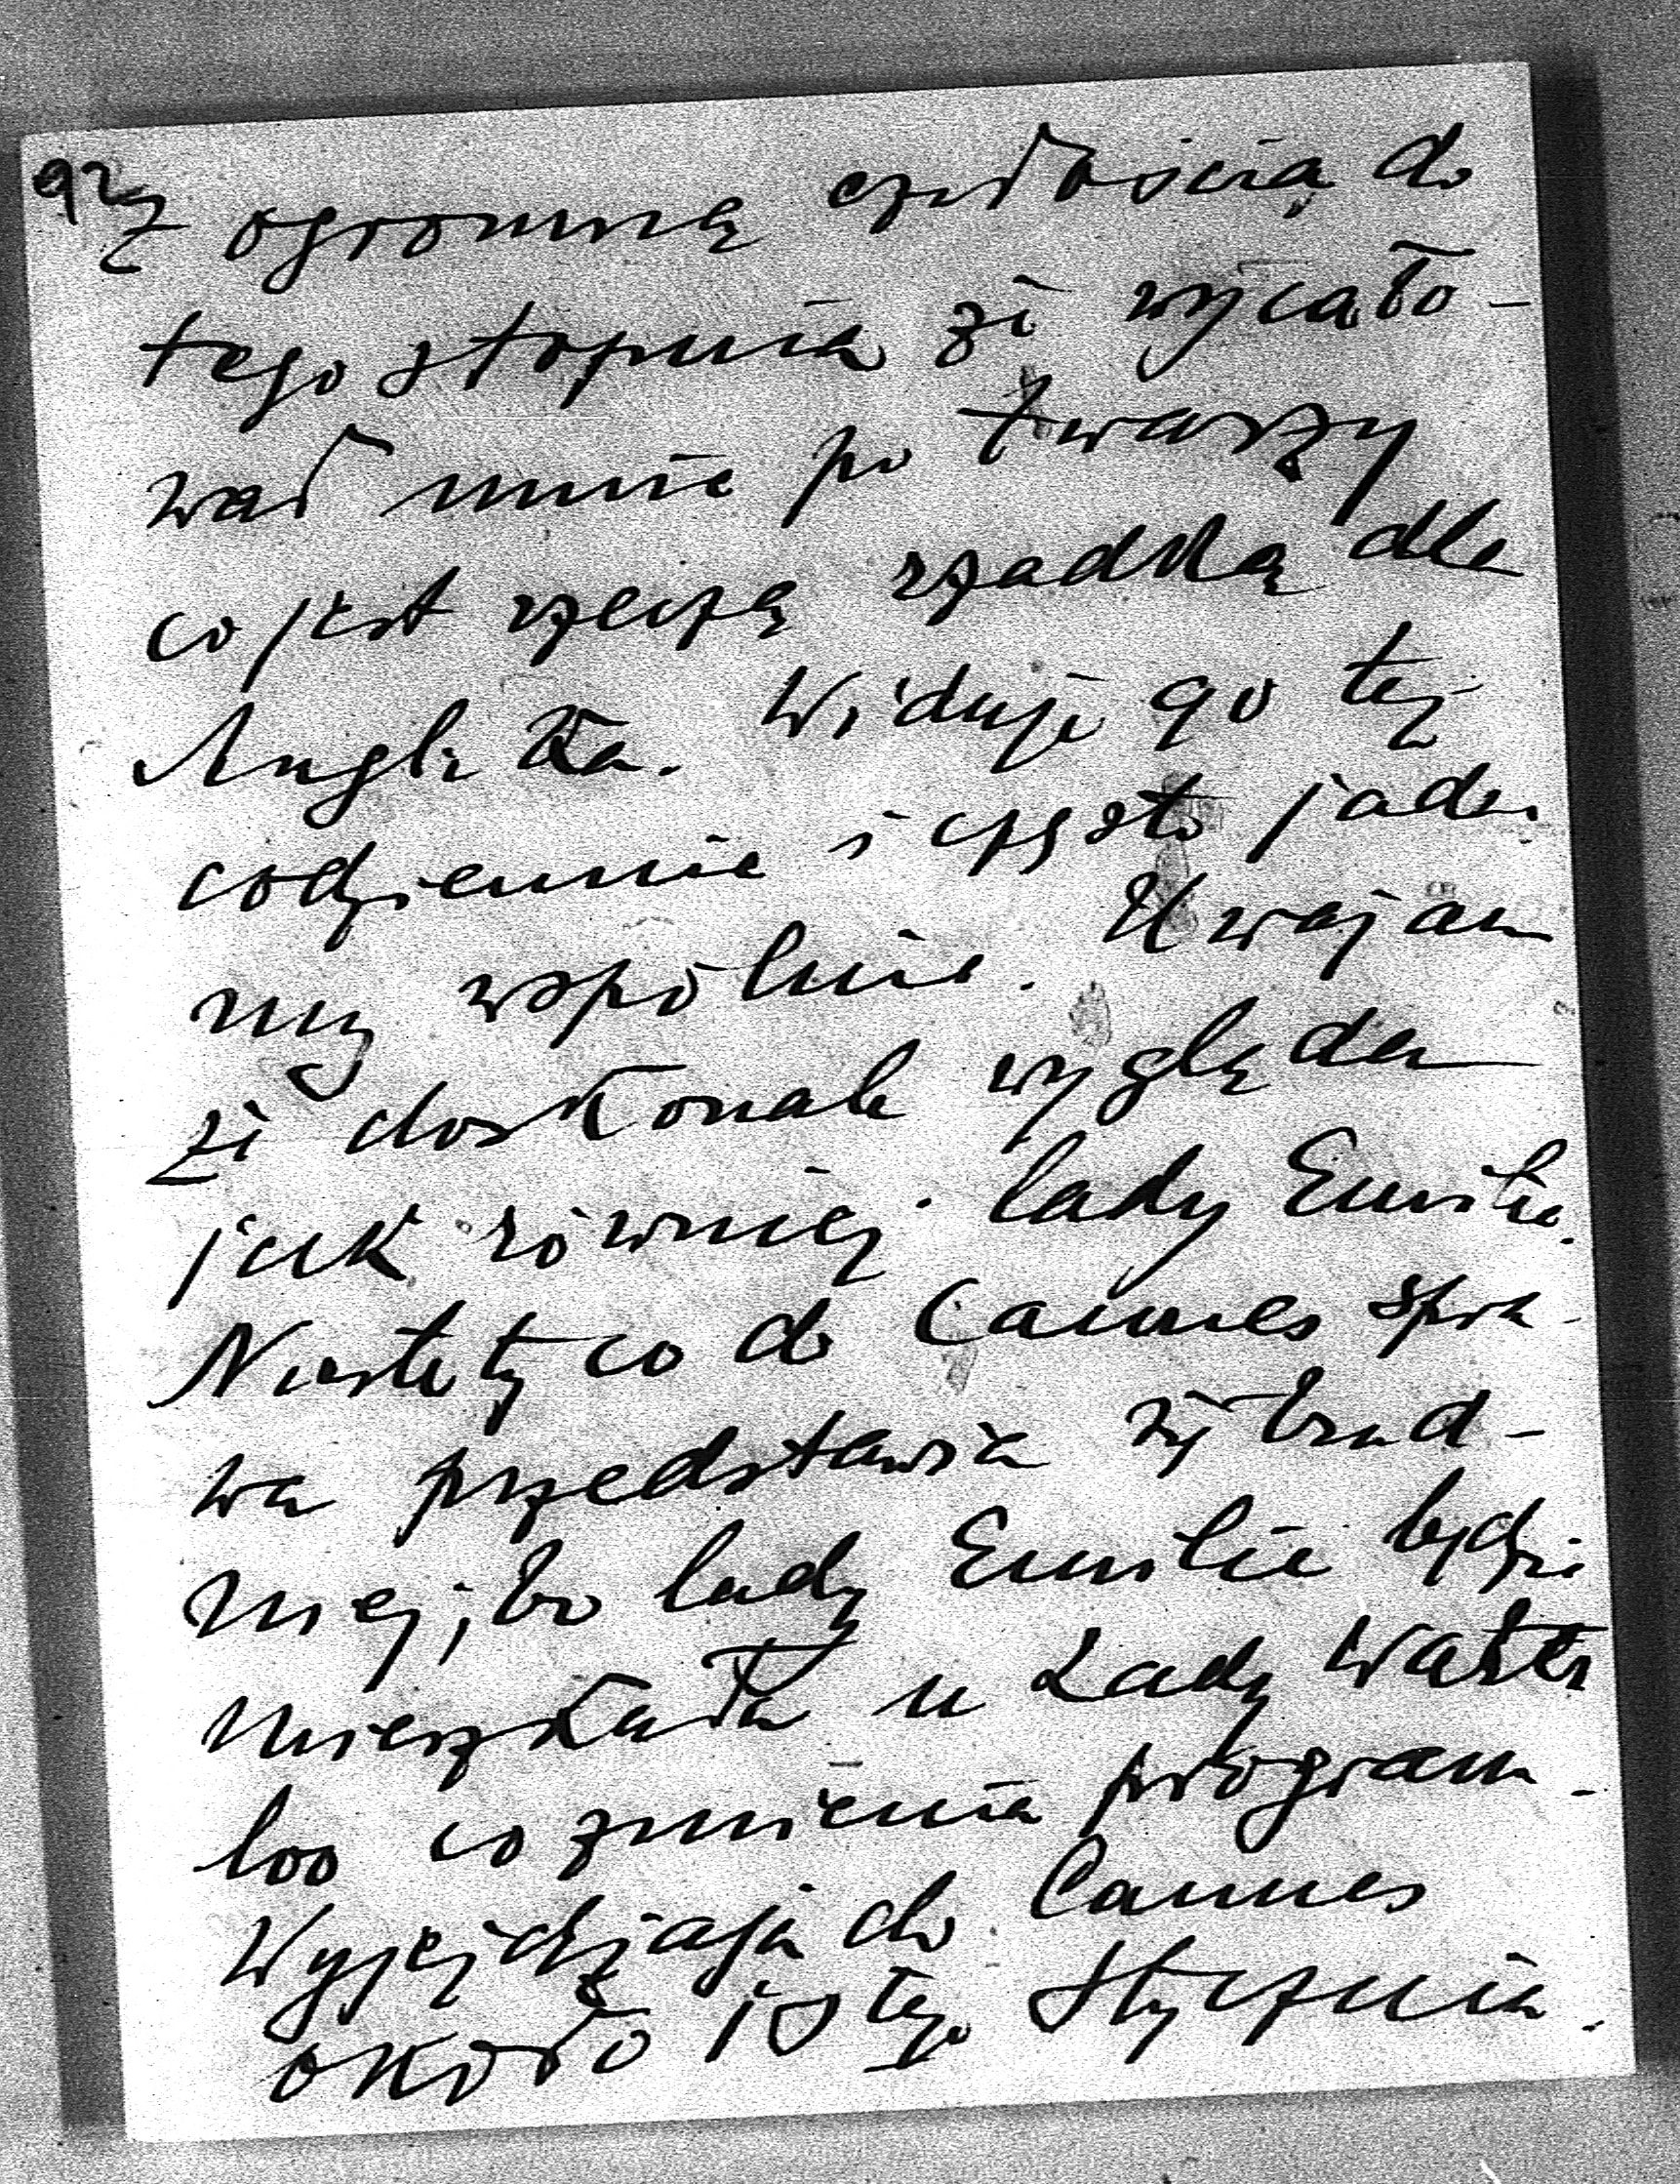 92
z ogromną czułością do
tego stopnia że wycało-
wał mnie po twarzy
co jest rzeczą rzadką dla
Anglika. Widuję go też
codziennie i często jada-
my wspólnie. Uważam
że doskonale wygląda
jak również lady Emilie.
Niestety co do Cannes spra-
wa przedstawia się trud-
niej, bo lady Emilie będzie
mieszkała u Lady Water
loo co zmienia program.
Wyjeżdżają do Cannes
około 10 tego Stycznia.